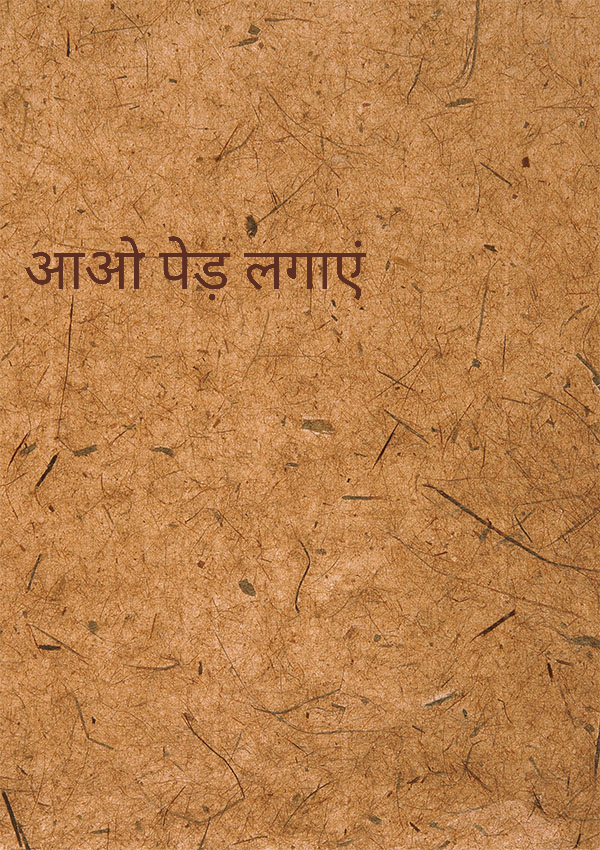 आओ पेड़ लगाएं